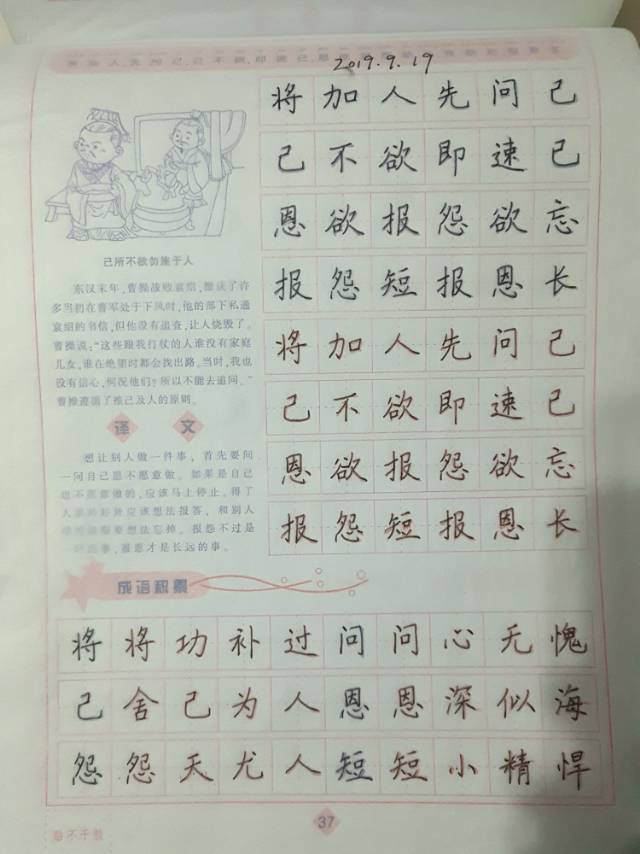 2019.9.19
将加人先问己
己不欲即速已
恩欲报怨欲忘
报怨短报恩长
将加人先问己
己不欲即速已
恩欲报怨欲忘
报怨短报恩长
己所不欲勿施于人
东汉末年，曹操战败袁绍，搜获了许
多当初在曹军处于下风时，他的部下私通
袁绍的书信，但他没有追查，让人烧毁了。
曹操说："这些跟我行仗的人谁没有家庭
儿女，谁在绝望时都会找出路。当时，我也
没有信心，何况他们？所以不能去追问。"
曹操遵循了推己及人的原则。
译文
想让别人做一件事，首先要问
一问自己愿不愿意做。如果是自己
也不愿意做的，应该马上停止。得了
人家的好处应该想法报答，和别人
想法忘掉。报怨不过是
事，报恩才是长远的事。
成语积累
将将功补过问问心无愧
己舍己为人恩恩深似海
怨怨天尤人短短小精悍
37